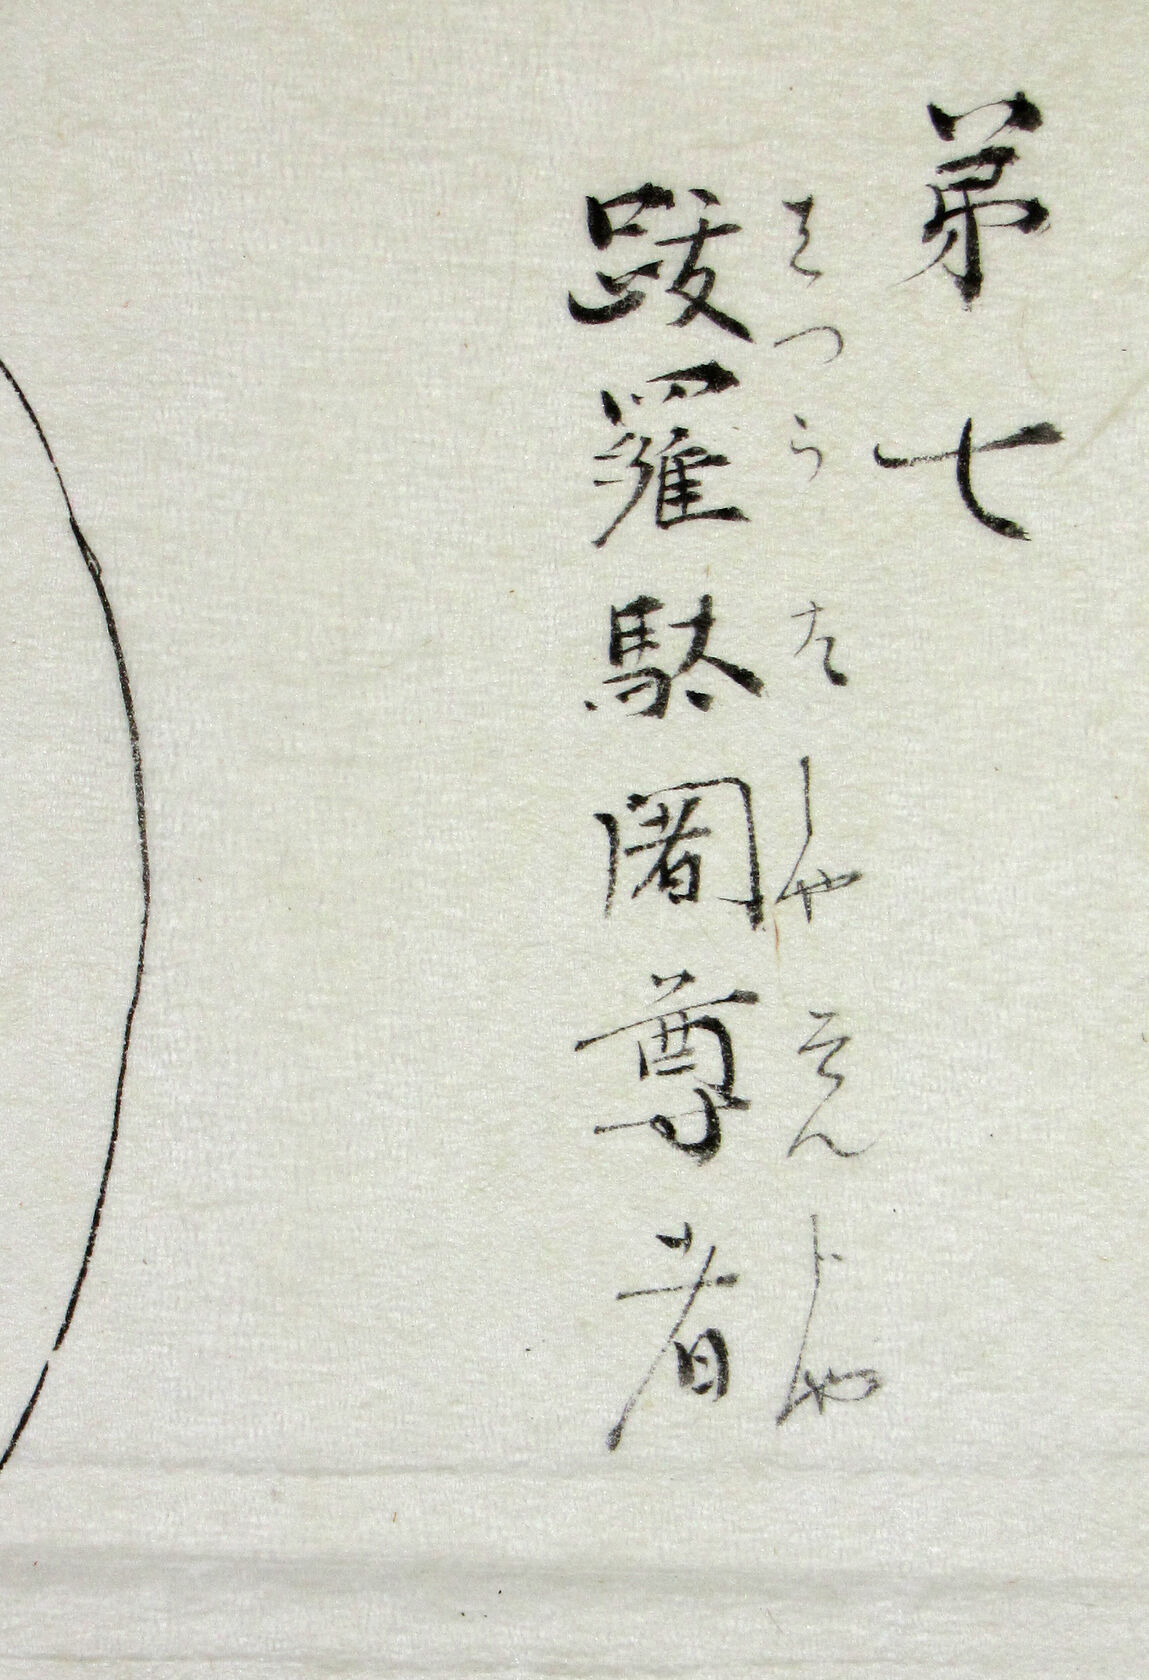 弟七
はつらたしやそんしや
跋羅駄闍尊者